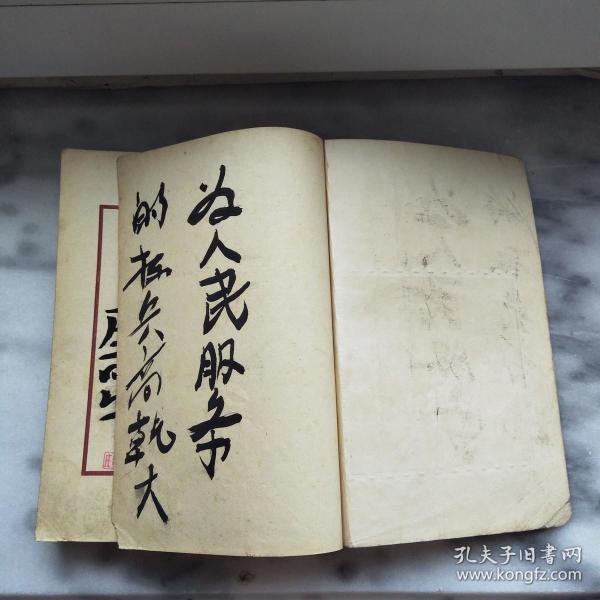 为人民服务
的标兵高乾大
孔夫子旧书网
www.kongfz.com